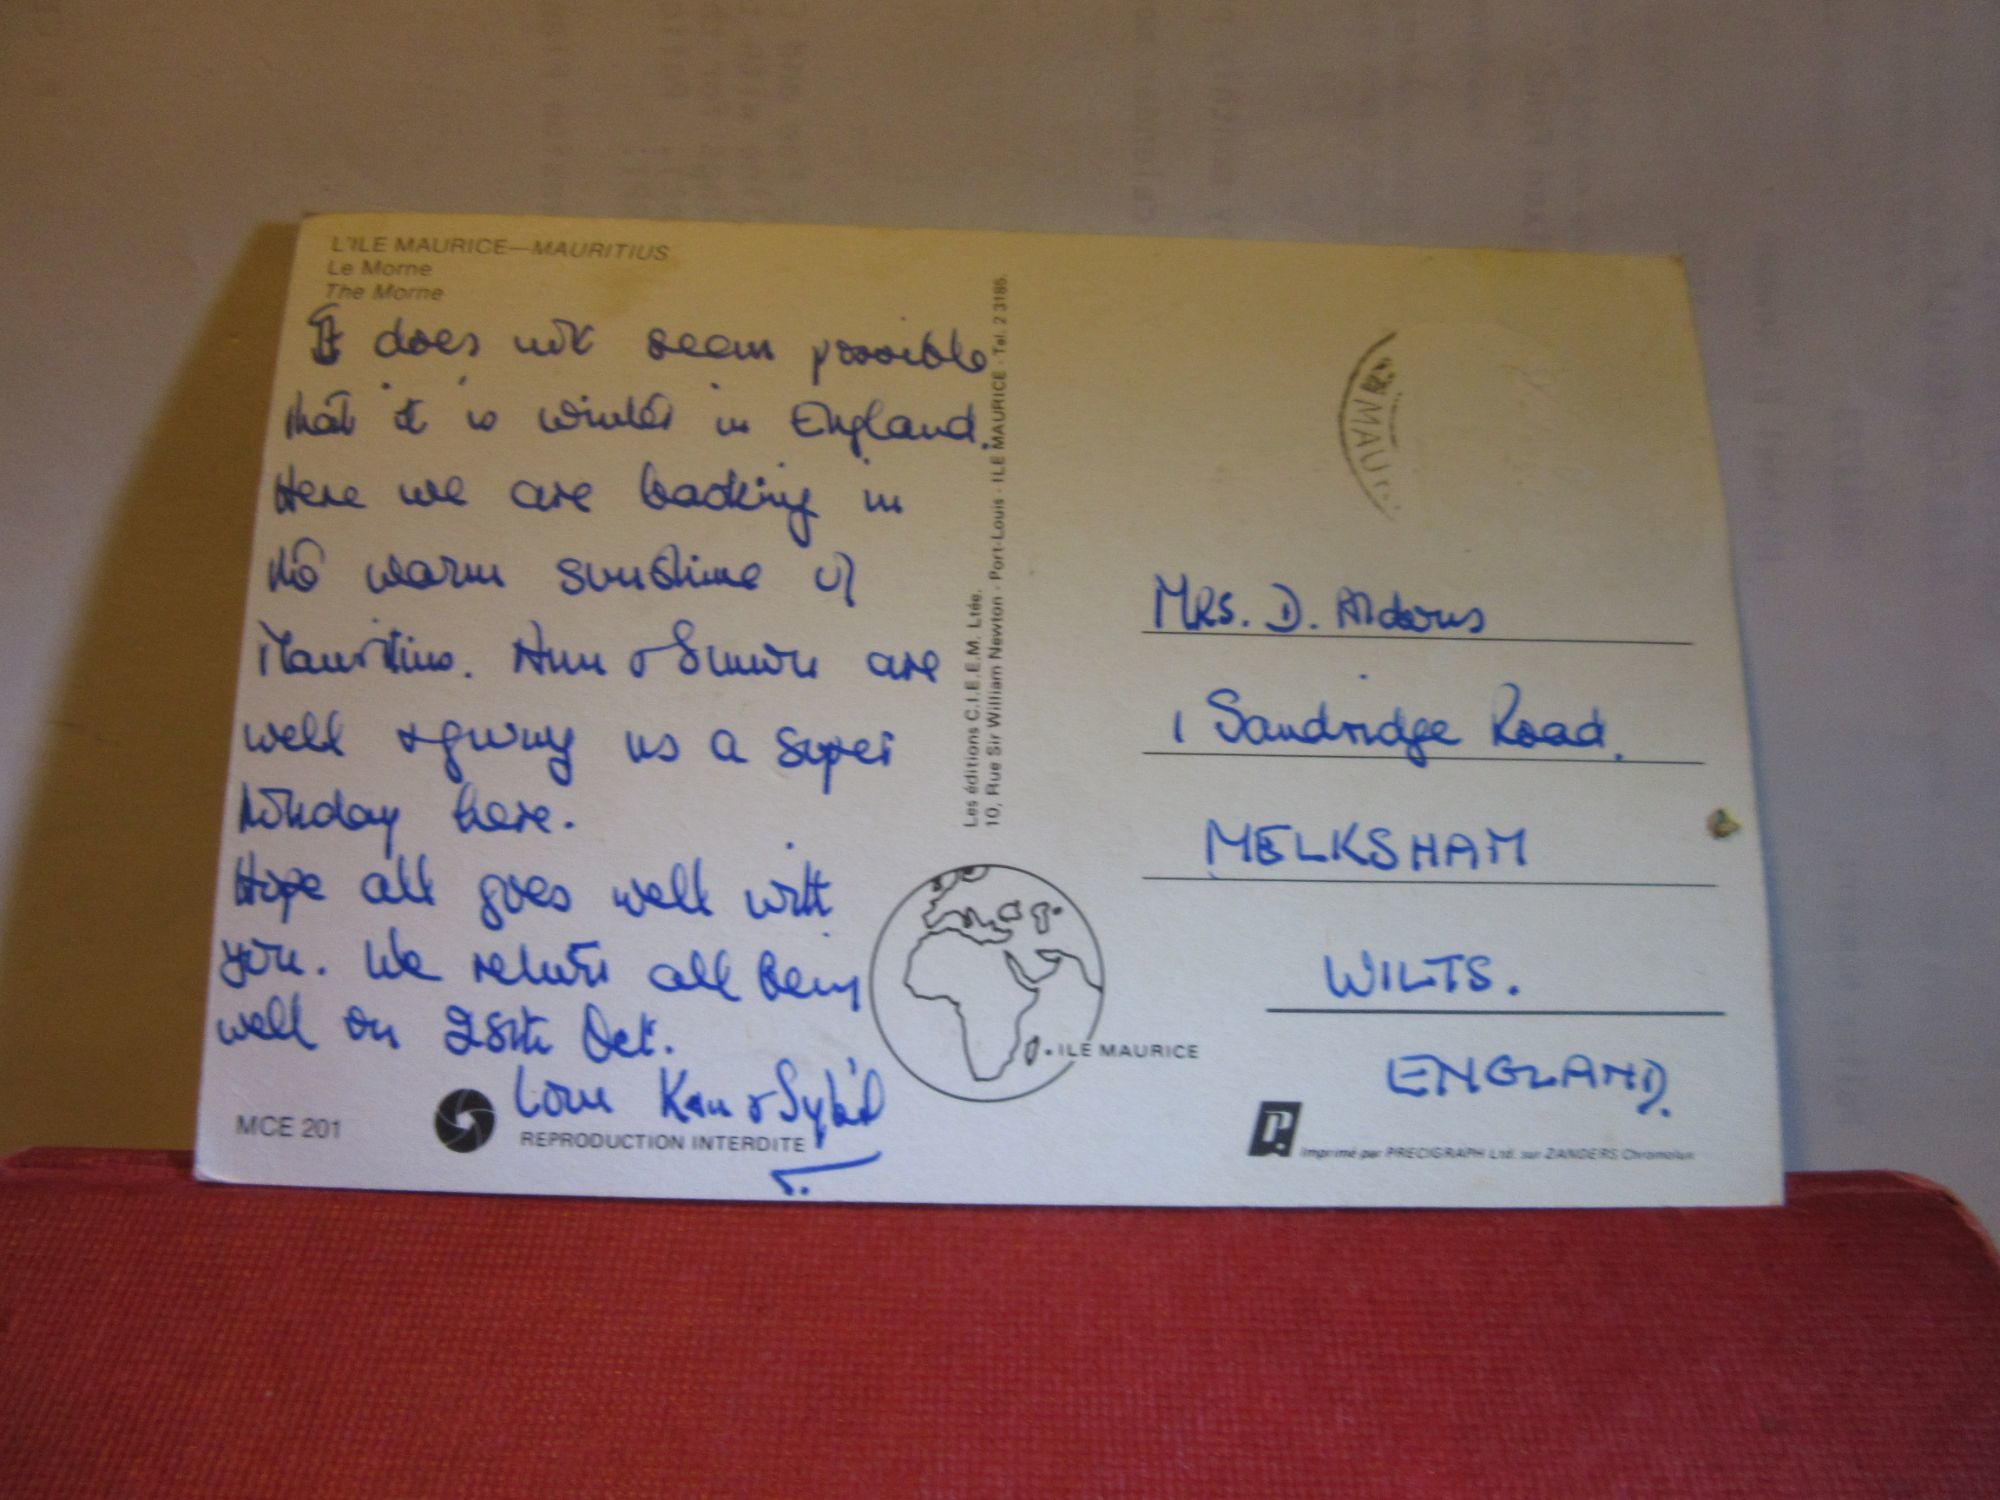 L'ILE MAURICE—MAURITIUS
Le Morne
The Morne
It does not seem possible
that it is winter in England.
Here we are basking in
the warm sunshine of
Mauritius. Ann & Simon are
well & giving us a super
holiday here.
Hope all goes well with
you. We return all being
well on 28th Oct.
Love Ken & Sybil
MCE 201
REPRODUCTION INTERDITE
Les éditions C.I.E.E.M. Ltée.
10, Rue Sir William Newton - Port-Louis - ILE MAURICE - Tel. 2 3185.
ILE MAURICE
MAURI
Mrs. D.
1 Sandridge Road.
MELKSHAM
WILTS.
ENGLAND.
Imprimé par PRECIGRAPH Ltd. sur ZANDERS Chromolux